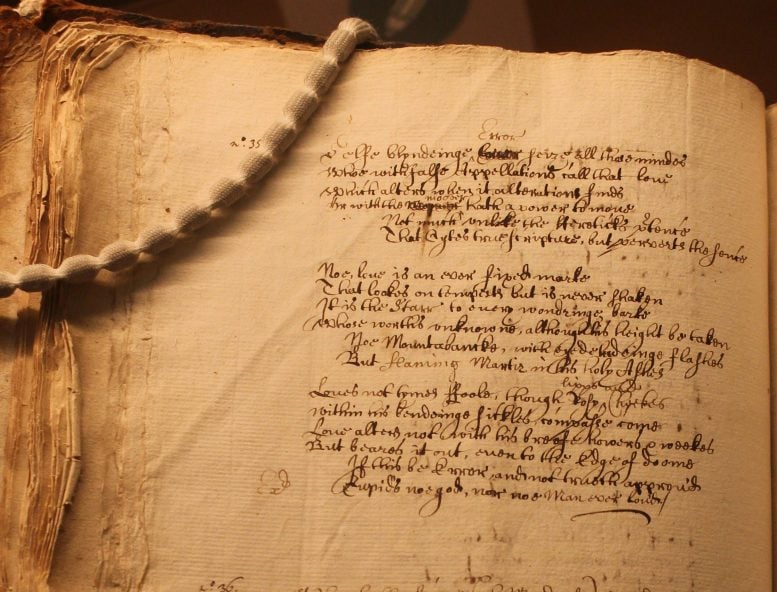 n.º 35
Error
Selfe blyndeinge seize all those mindes
Whoe with false Appellations call that love
Which alters when it alterations finds
moover
Or with the hath a power to move
Not much unlike the Hereticks ptence
That Cytes true scripture, but perverts the sence
Noe, love is an ever fixed marke
That lookes on tempests but is never shaken
It is the Starr to every wondringe barke
Whose worth's unknowne, although his height be taken
Noe Mountabancke, with eyedeludeinge flashes
But flaming Martir in his holy Ashes
lipps and
Loves not tymes Foole, though Rosy Cheekes
Within his bendeinge sickles compasse come
Love alters not with his breif howers & weekes
But beares it out, even to the Edge of doome
If this be Error and not trueth approvd
Cupids noe god, nor noe Man ever lovd